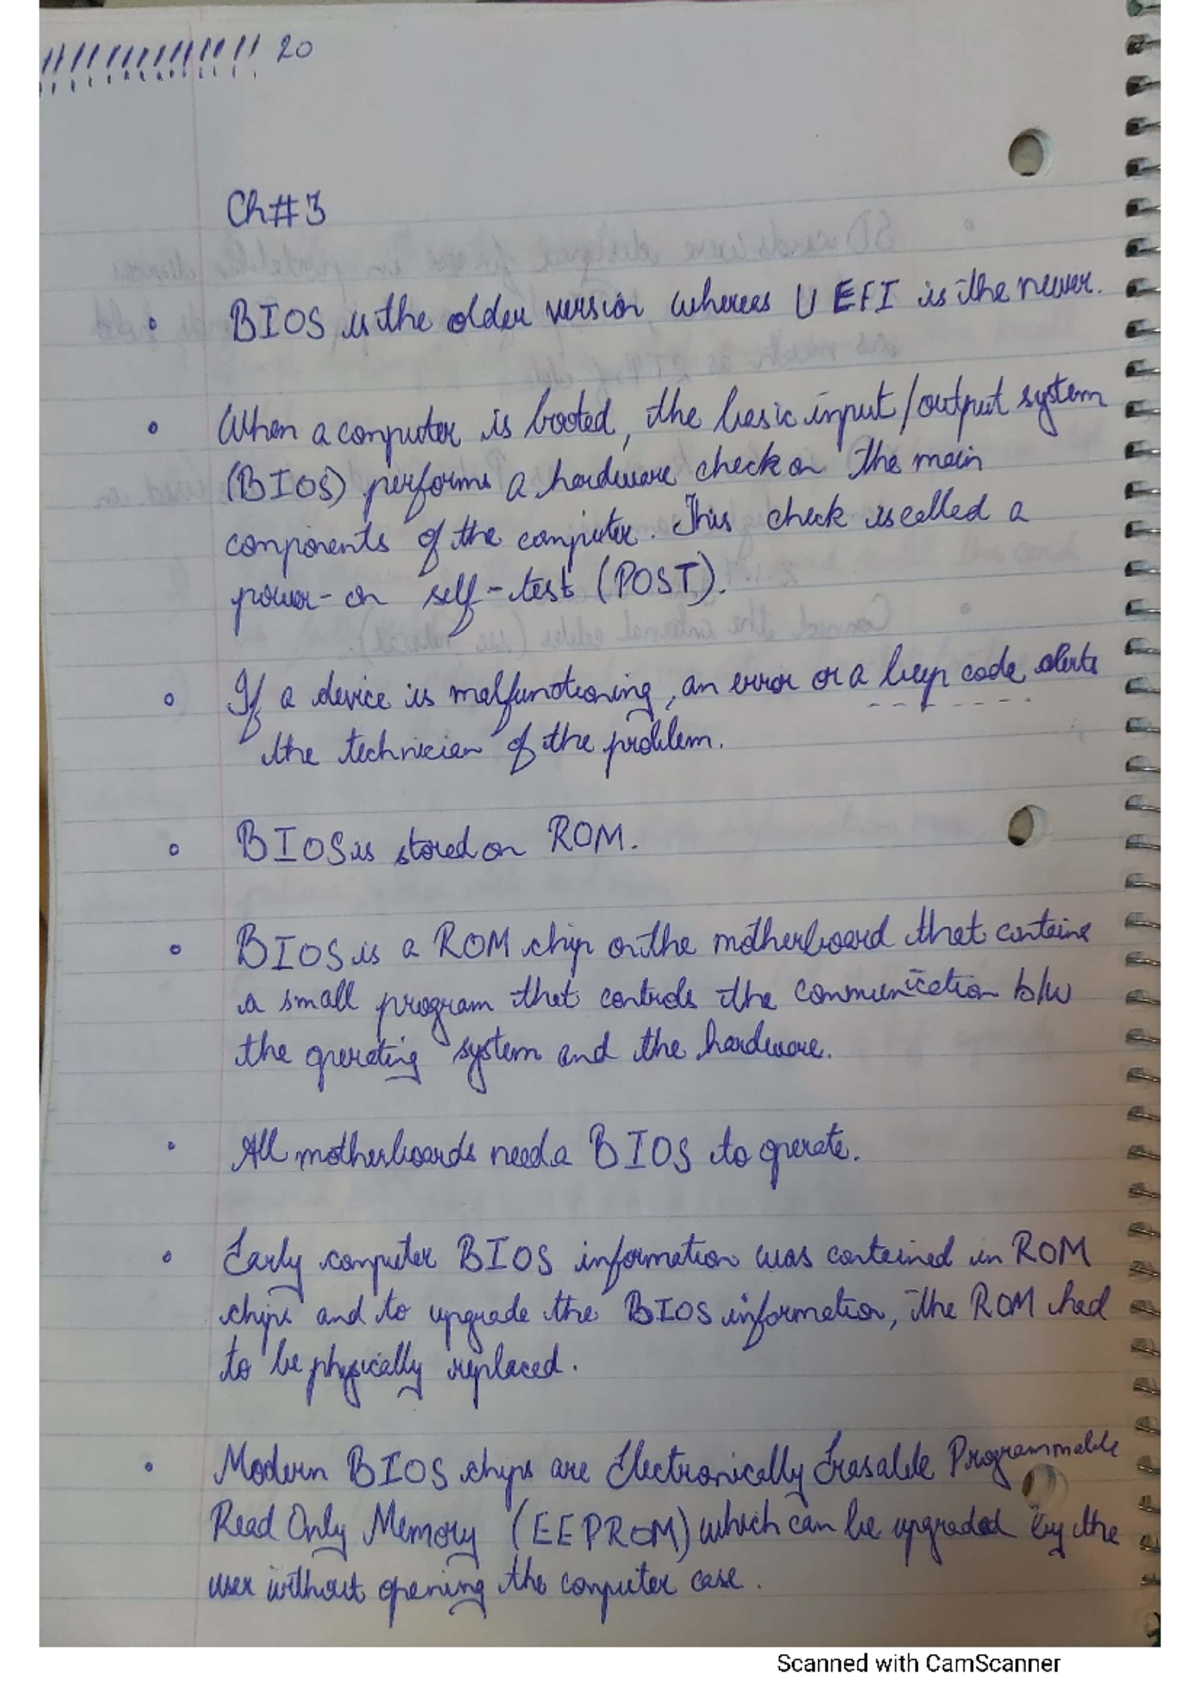 20
Ch#3
BIOS is the older version whereas UEFI is the newer.
When a computer is booted, the basic input/output system
(BIOS) performs a hardware check on the main
components of the computer. This check is called a
power-on self-test (POST).
If a device is malfunctioning, an error or a beep code alerts
the technician of the problem.
BIOS is stored on ROM.
BIOS is a ROM chip on the motherboard that contains
a small program that controls the communication b/w
the operating system and the hardware.
All motherboards need a BIOS to operate.
Early computer BIOS information was contained in ROM
chips and to upgrade the BIOS information, the ROM had
to be physically replaced.
Modern BIOS chips are Electronically Erasable Programmable
Read Only Memory (EEPROM) which can be upgraded by the
user without opening the computer case.
Scanned with CamScanner